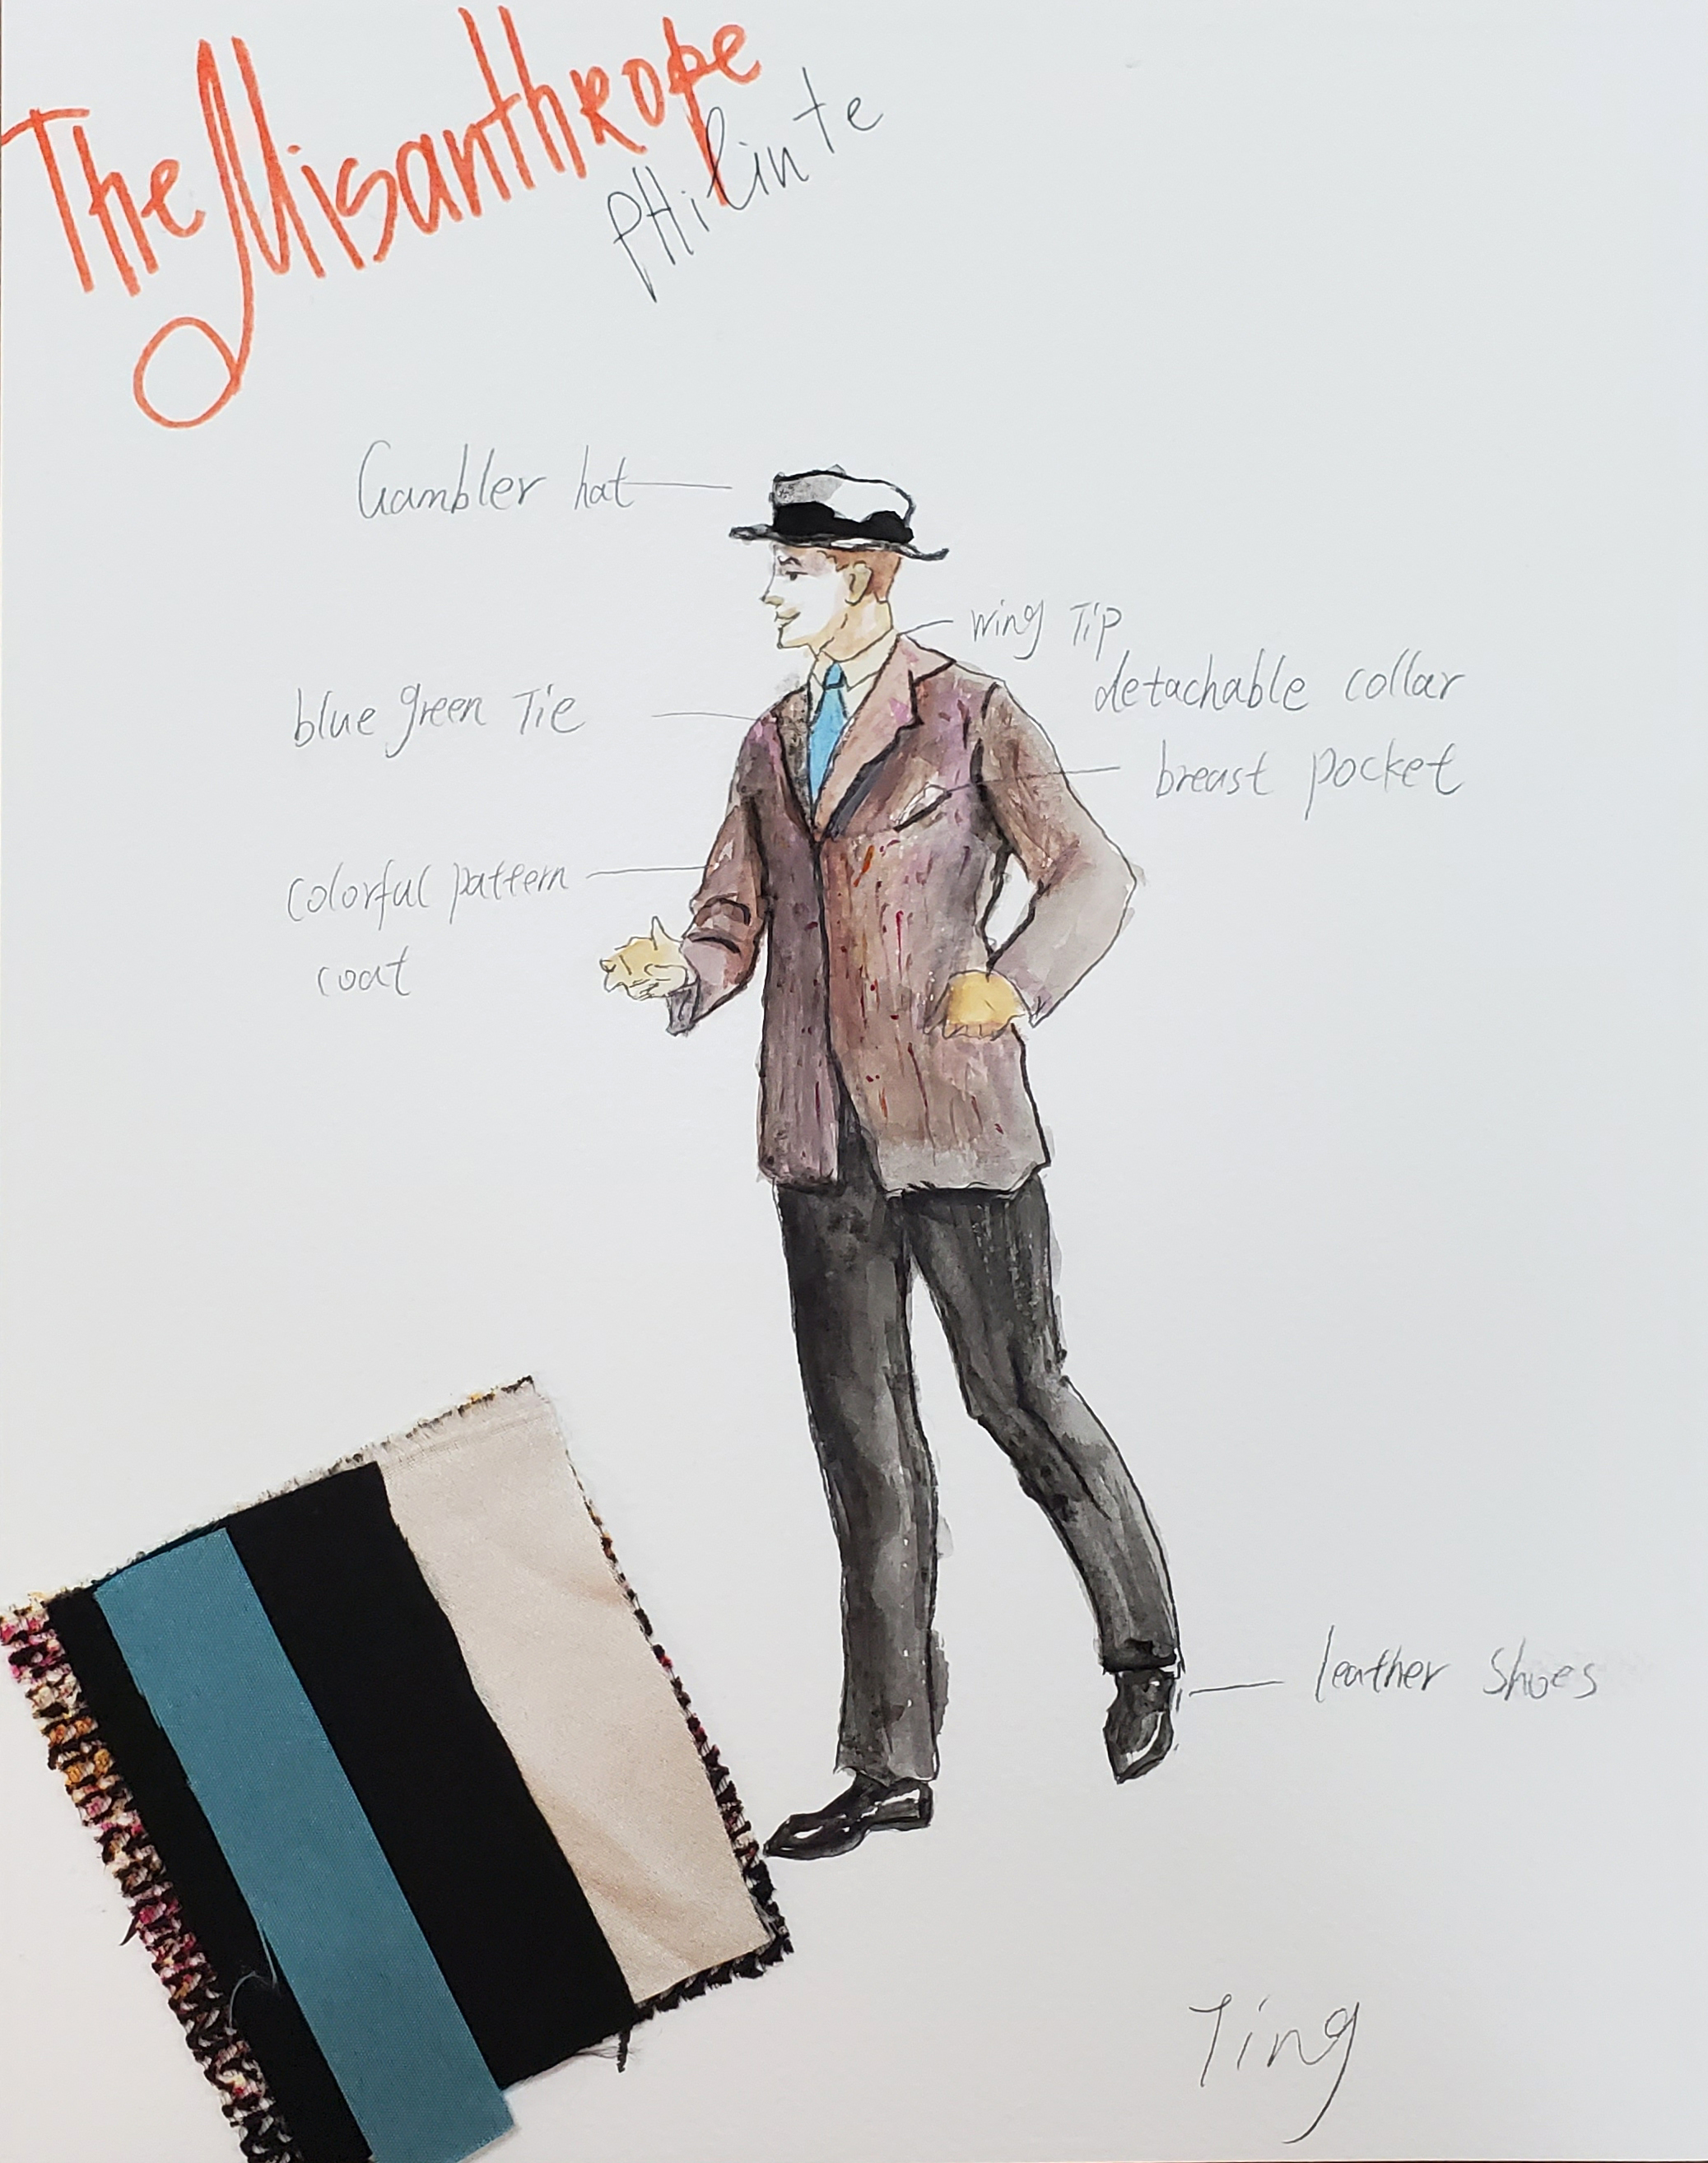 The Misanthrope
PHilinte
Gambler hat
wing Tip
detachable collar
blue green Tie
breast pocket
colorful pattern
coat
leather shoes
Ting